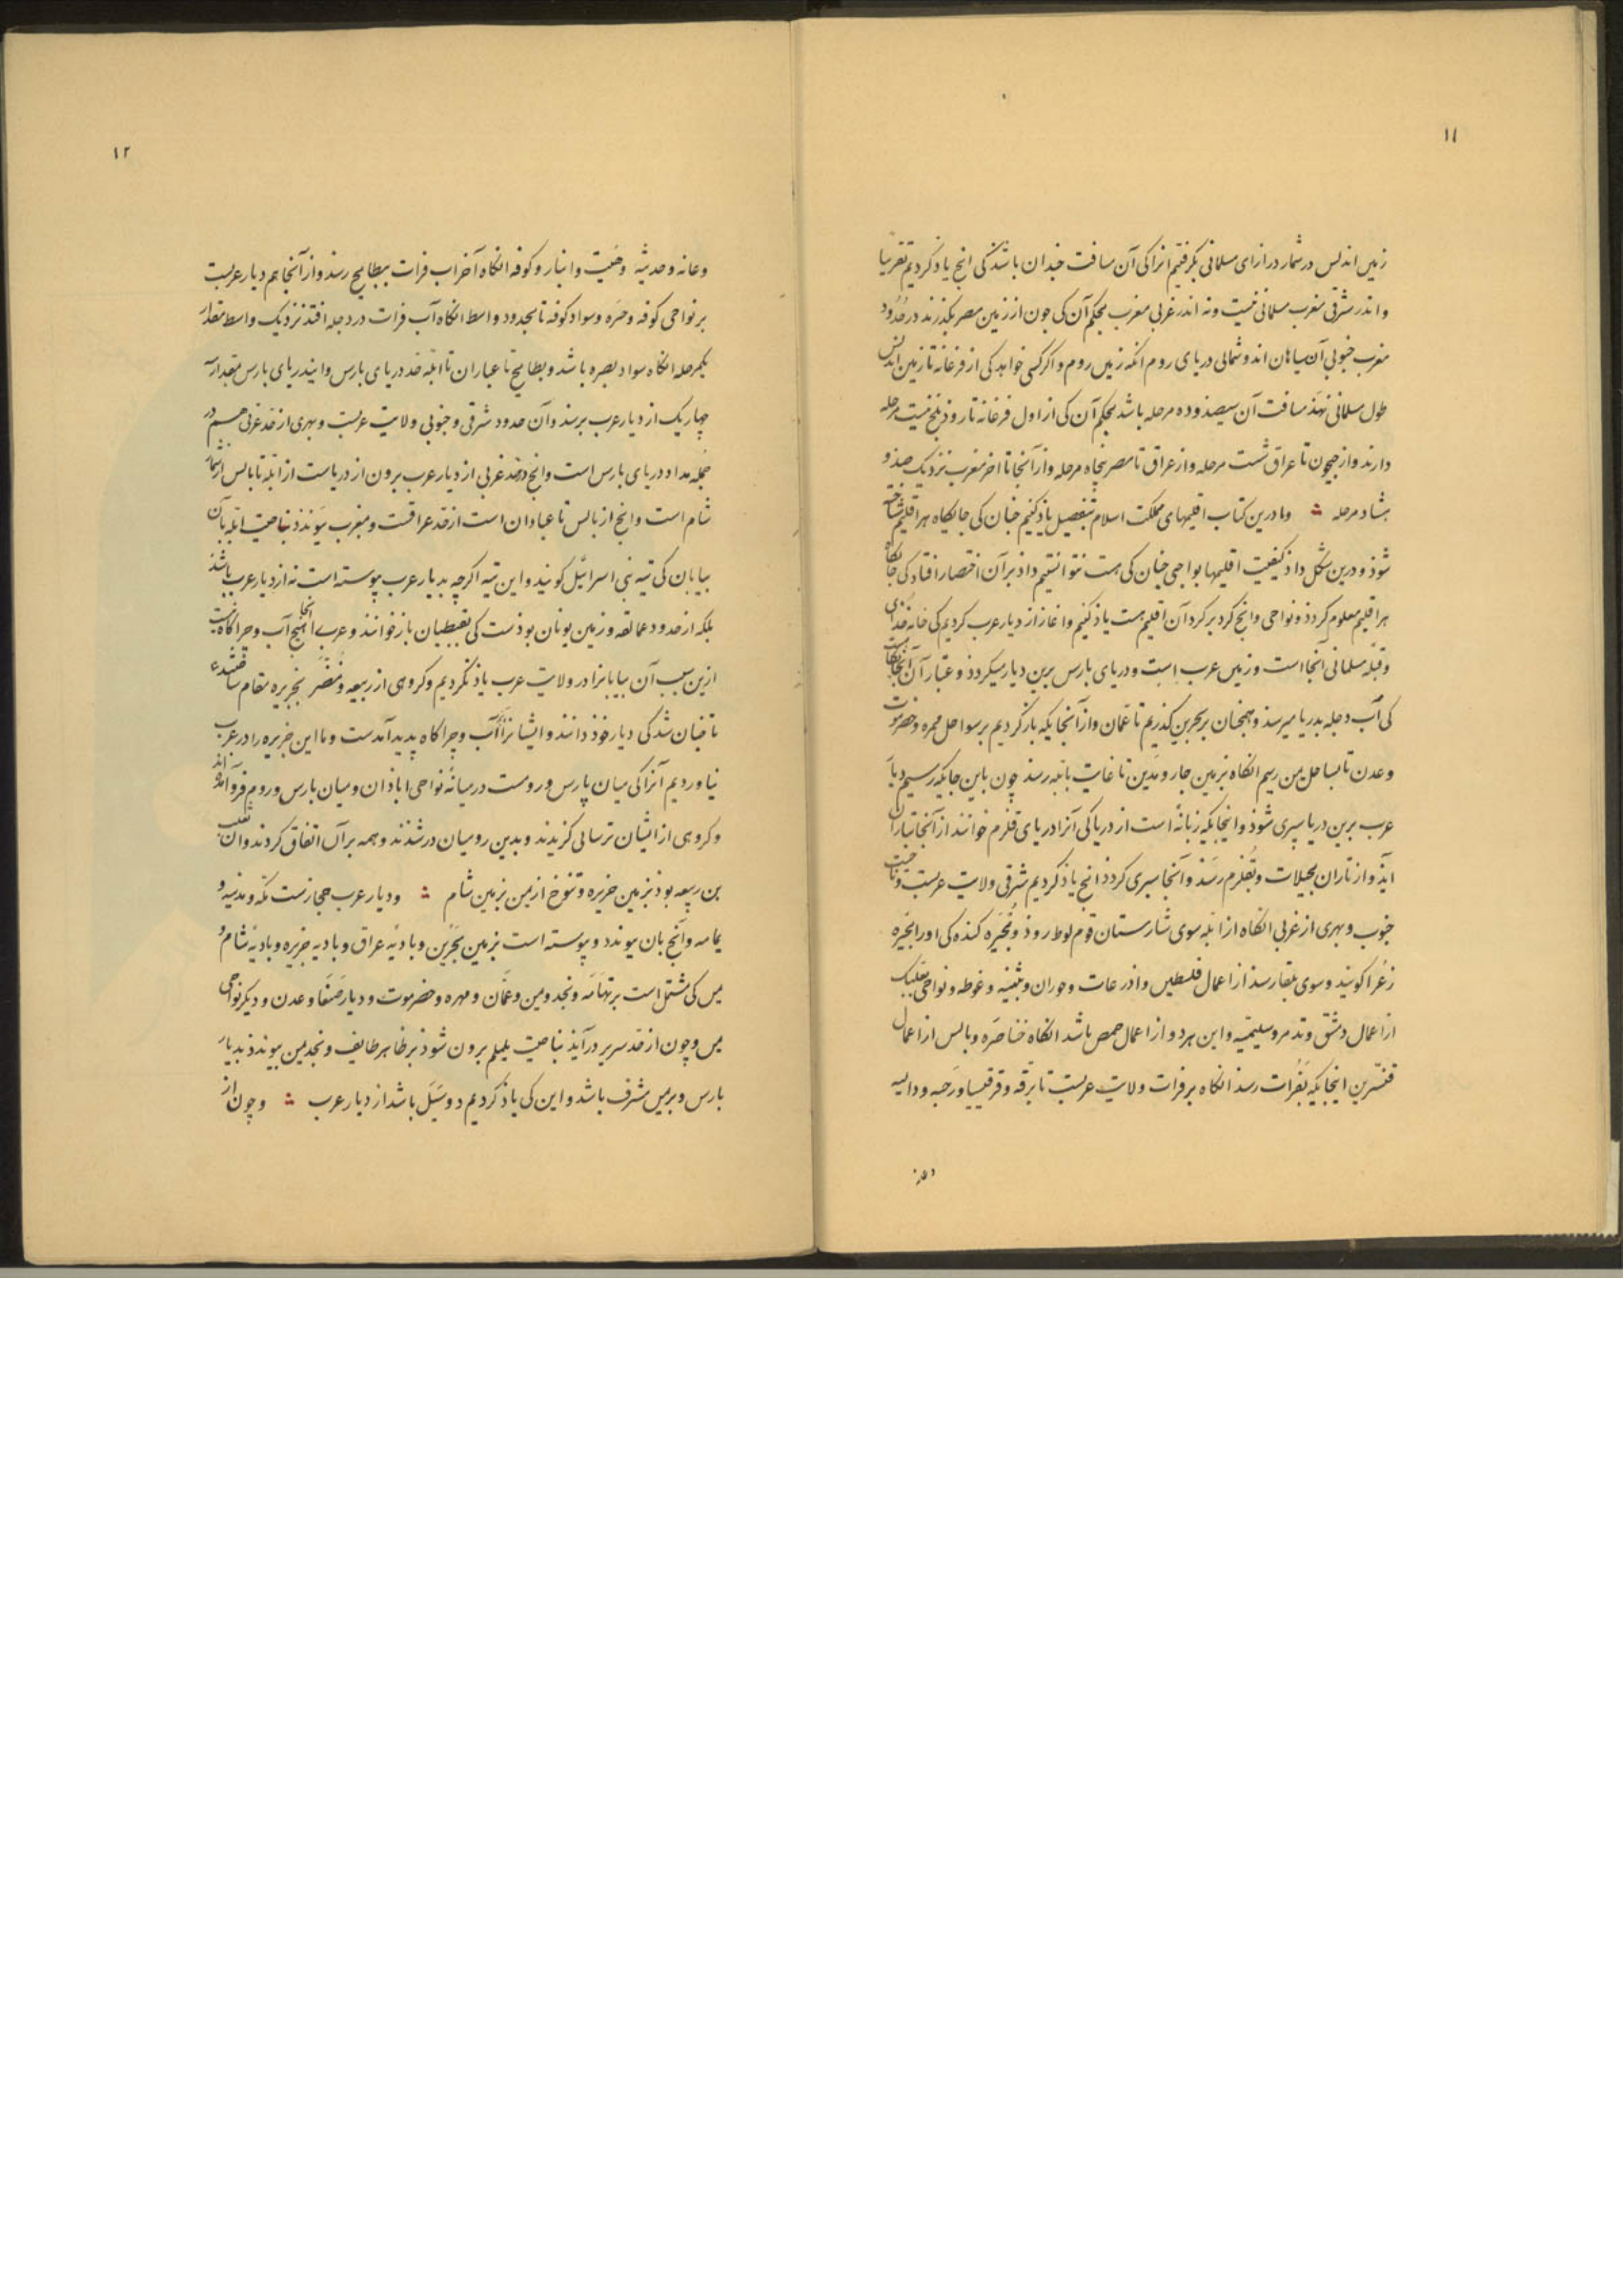 ۱۱
زمین اندلس در شمار درازای مسلمانی نگرفتیم انرا کی آن مسافت خندان باشد کی انچ یاد کردیم تقریبا
و اندر شرقی مغرب مسلمانی نیست و نه اندر غربی مغرب بحکم آن کی جون از زمین مصر بگذرند در حُدُود
مغرب جنوبی آن سیاهان اند و شمالی دریای روم انگه زمین روم و اگر کسی خواهد کی از فرغانه تا زمین اندلس
طول مسلمانی نهذ مسافت آن سیصد و ده مرحله باشد بحکم آن کی از اول فرغانه تا روذ بلخ بیست مرحله
دارند و از جیحون تا عراق شست مرحله و از عراق تا مصر پنجاه مرحله و از آنجا تا اخر مغرب نزدیک صد و
هشتاد مرحله ؞ و ما درین کتاب اقلیمهای مملکت اسلام بتفصیل یاد کنیم چنان کی جایگاه هر اقلیم شناخته
شوذ و درین شکل داذ کیفیت اقلیمها بواجبی چنان کی هست نتوانستیم داد بر آن اختصار افتاد کی جایگاه
هر اقلیم معلوم کردذ و نواحی و انچ کرد بر کرد آن اقلیم هست یاذ کنیم و اغاز از دیار عرب کردیم کی خانه خدای
و قبله مسلمانی آنجا است و زمین عرب است و دریای بارس برین دیار میکردذ و عبّادان آنجایگاه
کی آب دجله بدریا میرسذ و همجنان بر بحرین کذریم تا عمان و از آنجایکه باز کردیم بر سواحل مهره و حضرموت
و عدن تا بساحل یمن رسیم انگاه بزمین جار و مدین تا غایت بایله رسذ چون باین جایکه رسیم دیار
عرب برین دریا سپری شوذ و اینجایکه زبانهٔ است از دریا کی آنرا دریای قلزم خوانند از آنجا بتاران
آیذ و از تاران بجبیلات و بقلزم رسذ و آنجا سپری کردذ انچ یاذ کردیم شرقی ولایت عربست و ناحیت
جنوب و بهری از غربی انگاه از ایله سوی شارستان قوم لوط روذ و بُحَیره کنده کی او را بحیره
زغر اکویند و سوی بلقا رسذ از اعمال فلسطین و اذرعات و حوران و بثنیه و غوطه و نواحی بعلبک
از اعمال دمشق و تدمر و سلیمیه و این هر دو از اعمال حمص باشد انگاه خناصره و بالس از اعمال
قنسرین اینجایکه بفُرات رسذ انگاه بر فرات ولایت عربست تا برقه و قرقیسیا و رحبه و دالیه
وعانه
۱۲
وعانه و حدیثه و هیت و انبار و کوفه انگاه آخر اب فرات ببطایح رسذ و از آنجا هم دیار عربست
بر نواحی کوفه و حیره و سواد کوفه تا بحدود واسط انگاه آب فرات در دجله افتد نزدیک واسط مقدار
یکمرحله انگاه سواد بصره باشد و بطایح تا عبادان تا ابله حد دریای بارس و ایند ریای بارس مقدار سه
چهار یک از دیار عرب برسذ و آن حدود شرقی و جنوبی ولایت عربست و بهری از حد غربی هم در
جمله مداد دریای بارس است و انچ در حد غربی از دیار عرب برون از دریاست از ایله تا بالس از شمار
شام است و انچ از بالس تا عبادان است از حد عراقست و بمغرب پیوندذ بناحیت ایله بآن
بیابان کی تیه بنی اسرائیل کویند و این تیه اگرچه بدیار عرب پیوسته است نه از دیار عرب باشد
بلکه از حدود عمالقه و زمین یونان بوذست کی بقبطیان باز خوانند و عرب را انجا هیچ آب و چراگاه نیست
ازین سبب آن بیابانرا در ولایت عرب یاذ نکردیم و کروهی از ربیعه و مُضَر بجزیره مقام ساختند
تا چنان شد کی دیار خوذ دانند و ایشانرا آب و چراگاه پدید آمدست و ما این جزیره را در عرب
نیاوردیم آنرا کی میان پارس و روست در میانهٔ نواحی اباذان و میان بارس و روم فرو آمده اند
و کروهی از ایشان ترسائی کزیدند و بدین رومیان در شذند و همه بر آن اتفاق کردند و آن تغلب
بن ربیعه بوذ بزمین جزیره و تنوخ از یمن بزمین شام ؞ و دیار عرب حجازست مکّه و مدینه و
یمامه و آنچ بان پیوندد و پیوسته است بزمین بحرین و بادیهٔ عراق و بادیه جزیره و بادیهٔ شام و
یمن کی مشتمل است بر تهامَه و نجد و یمن و عمّان و مهره و حضرموت و دیار صَنعَا و عدن و دیگر نواحی
یمن و چون از حد سریر در آیذ بناحیت یلملم برون شوذ بر ظاهر طایف و نجد یمن پیوندذ بدیار
بارس و بریمن مشرف باشد و این کی یاذ کردیم دو سَیَل باشد از دیار عرب ؞ و چون از